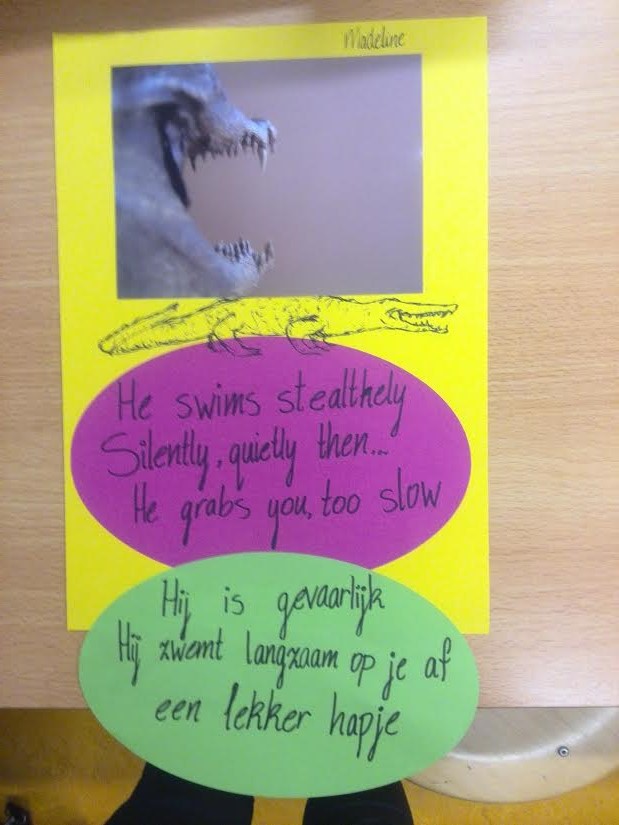 Madeline
He swims stealthely
Silently, quietly then...
He grabs you, too slow
Hij is gevaarlijk
Hij zwemt langzaam op je af
een lekker hapje